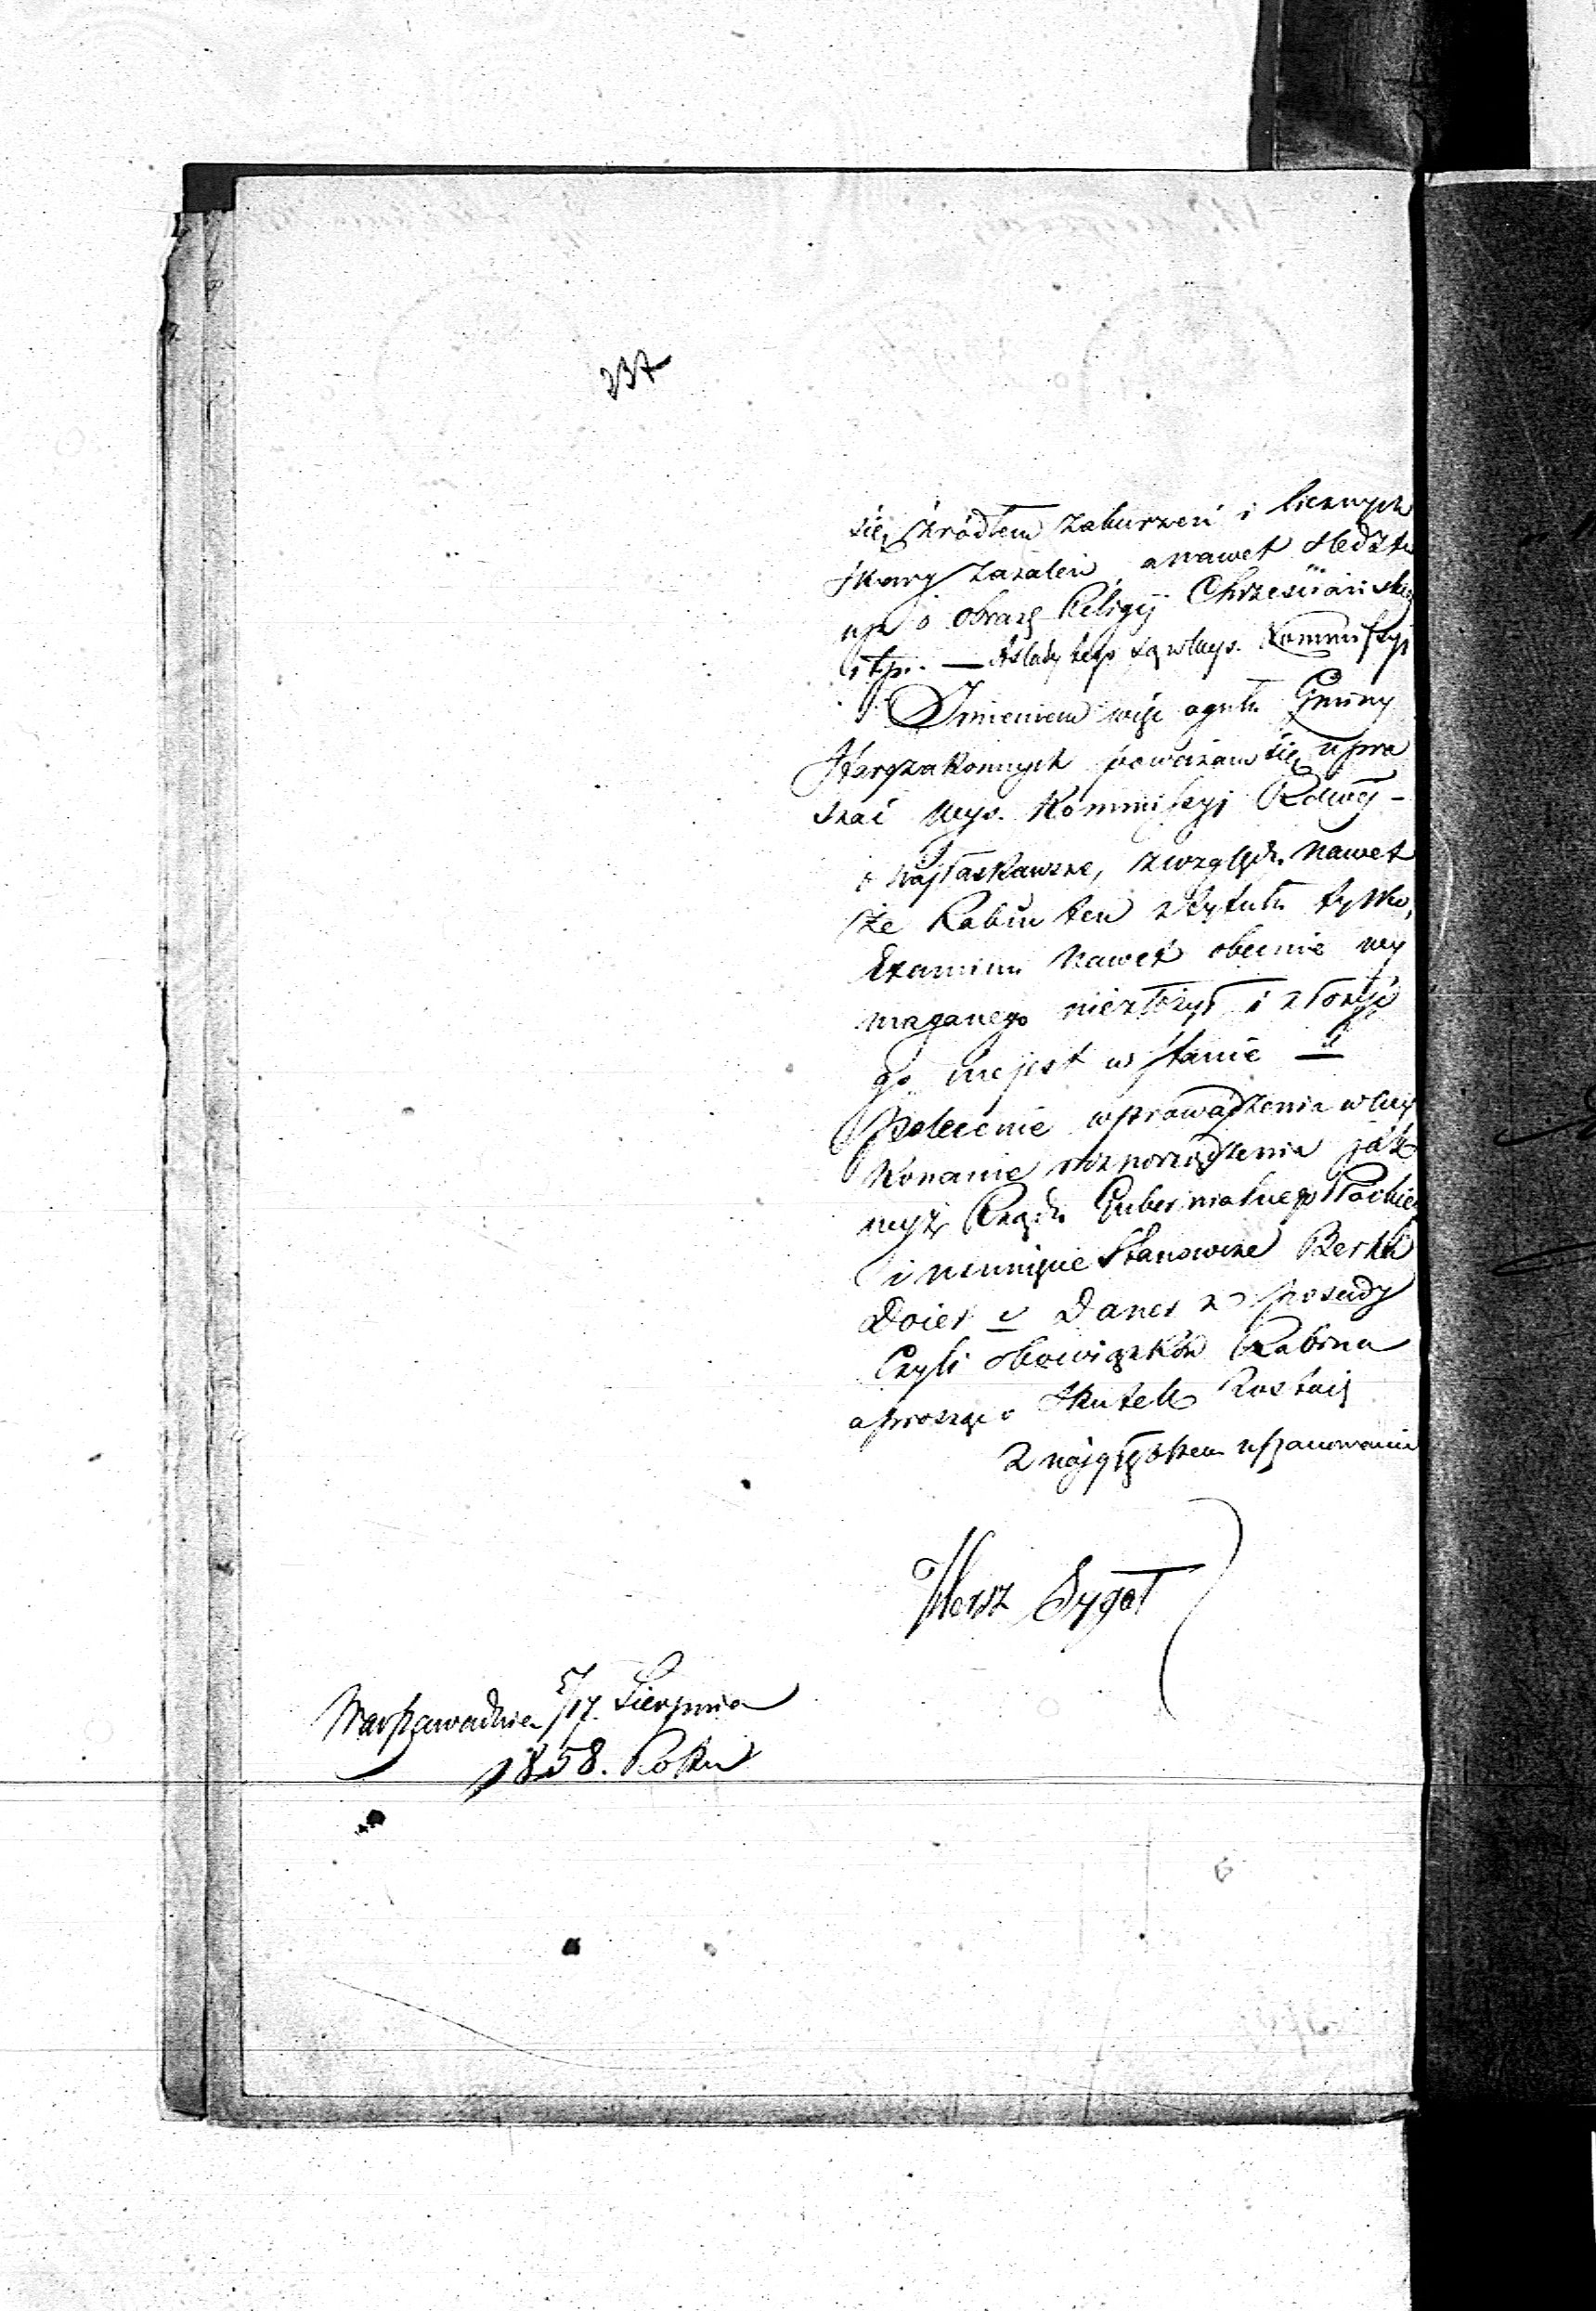 237
się źródłem zaburzeń i licznych
skarg zażaleń, a nawet śledztw
np o obrazę Religij Chrześciańskiej
itp. — ślady tego są w Wys. Kommissyi
Imieniem więc ogułu Gminy
Starozakonnych poważam się upra
szać Wys. Kommissyi Rdowéj -
o najłaskawsze, z względu nawet
że Rabin ten z tytułu tylko,
Examinu nawet obecnie wy
maganego niezłożył i złożyć
go niejest w stanie
Polecenie wprowadzenia w wy
konanie rozporządzenia jak
wyż Rządu Gubernialnego Płockiego
i usunięcie Stanowcze Berka
Doier v Daner z posady
Czyli obowiązków Rabina
a proszę o skutek Zostaię
Z najgłębszem uszanowaniem
Hersz Sygał
Warszawa dnia 5/17. Sierpnia
1858. Roku